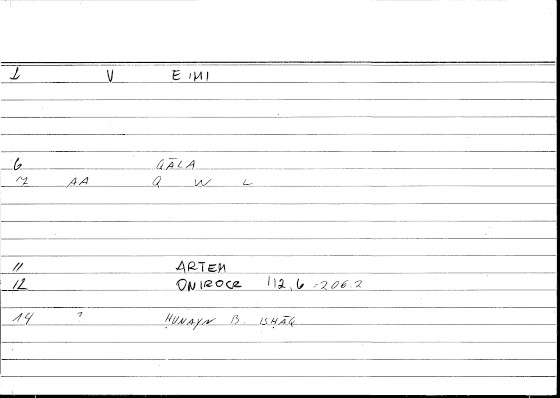 1 V EIMI
6 QĀLA
7 AA Q W L
11 ARTEM
12 ONIROCR 112,6 - 206.2
14 ? ḤUNAYN B. ISḤĀQ